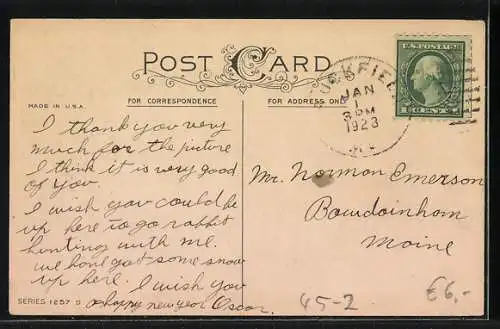 POST CARD
MADE IN U.S.A.
FOR CORRESPONDENCE
FOR ADDRESS ONLY
I thank you very
much for the picture
I think it is very good
of you.
I wish you could be
up here to go rabbit
hunting with me.
we have got some snow
up here. I wish you
a happy new year Oscar.
SERIES 1257 D
BUCKFIELD
JAN
1
3 PM
1923
ME.
U.S. POSTAGE
1 CENT 1
Mr. Norman Emerson
Bowdoinham
Maine
45-2
€6,-